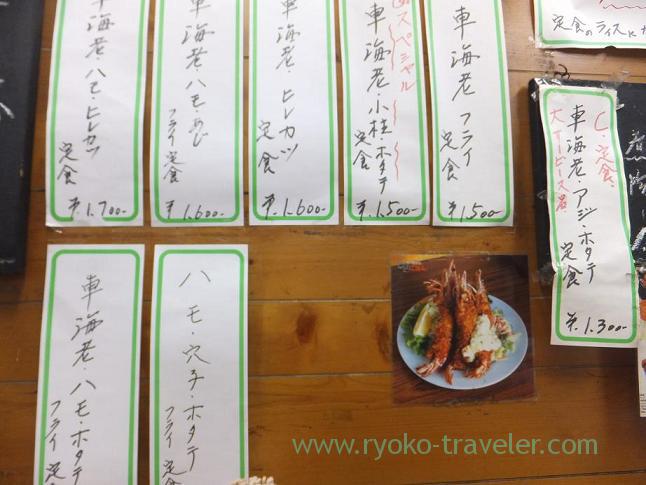 定食のライスに
C.定食
車海老・アジ・ホタテ
定食
¥1,300-
車海老 フライ
定食
¥1,500
スペシャル
車海老・小柱・ホタテ
定食
¥1,500-
車海老・ヒレカツ
定食
¥1,600-
車海老・ハモ
フライ定食
¥1,600-
車海老・ハモ・ヒレカツ
定食
¥1,700-
ハモ・穴子・ホタテ
フライ定食
車海老・ハモ・ホタテ
フライ定
www.ryoko-traveler.com